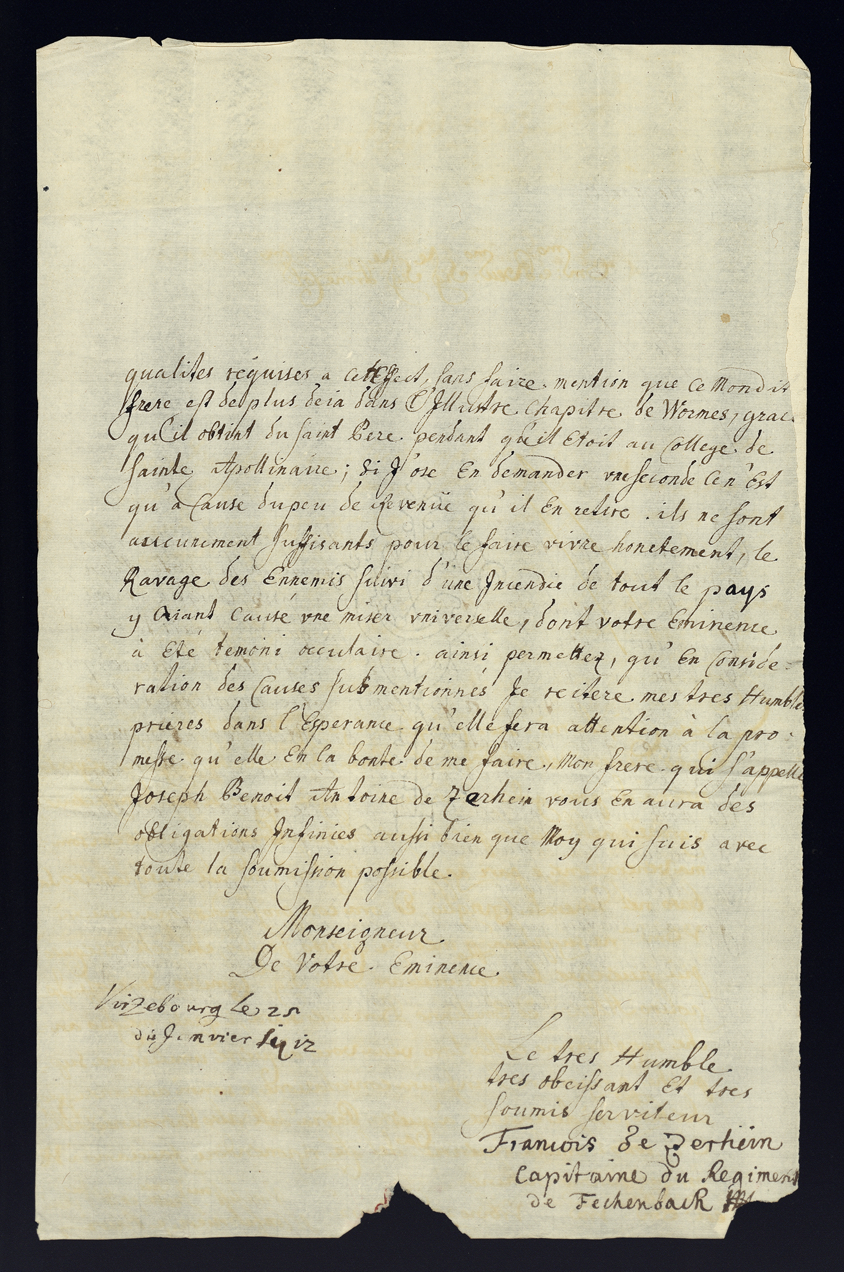 qualites réquises a cet Effect, sans faire mention que ce Mondit
frere est deplus deia dans l'Illustre Chapitre de Wormes, grac
qu'il obtint du Saint Pere pendant qu'il Etoit au College de
Sainte Apollinaire; Si J'ose En demander vne seconde ce n'Est
qu'a Cause dupeu de Revenüe qu'il En retire. ils ne sont
auccunement suffisants pour le faire vivre honetement, le
Ravage des Ennemis suivi d'une Incendie de tout le pays
y aiant causé vne miser vniverselle, dont votre Eminence
à Eté temoni occulaire. ainsi permettez, qu'En Conside-
ration des Causes submentionnés Je reitere mes tres Humble
prieres dans l'Esperance qu'elle fera attention à la pro-
messe qu'elle En la bonté de me faire, Mon frere qui s'appelle
Joseph Benoit Antoine de Zerhein vous En aura des
obligations Infinies aussi bien que Moy qui suis avec
toute la soumission possible.
Monseigneur
De Votre Eminence
Virzebourg Le 25
du Janvier
Le tres Humble
tres obeissant Et tres
soumis serviteur
Francois de Zerhein
Capitaine du Regiment
de Fechenbach